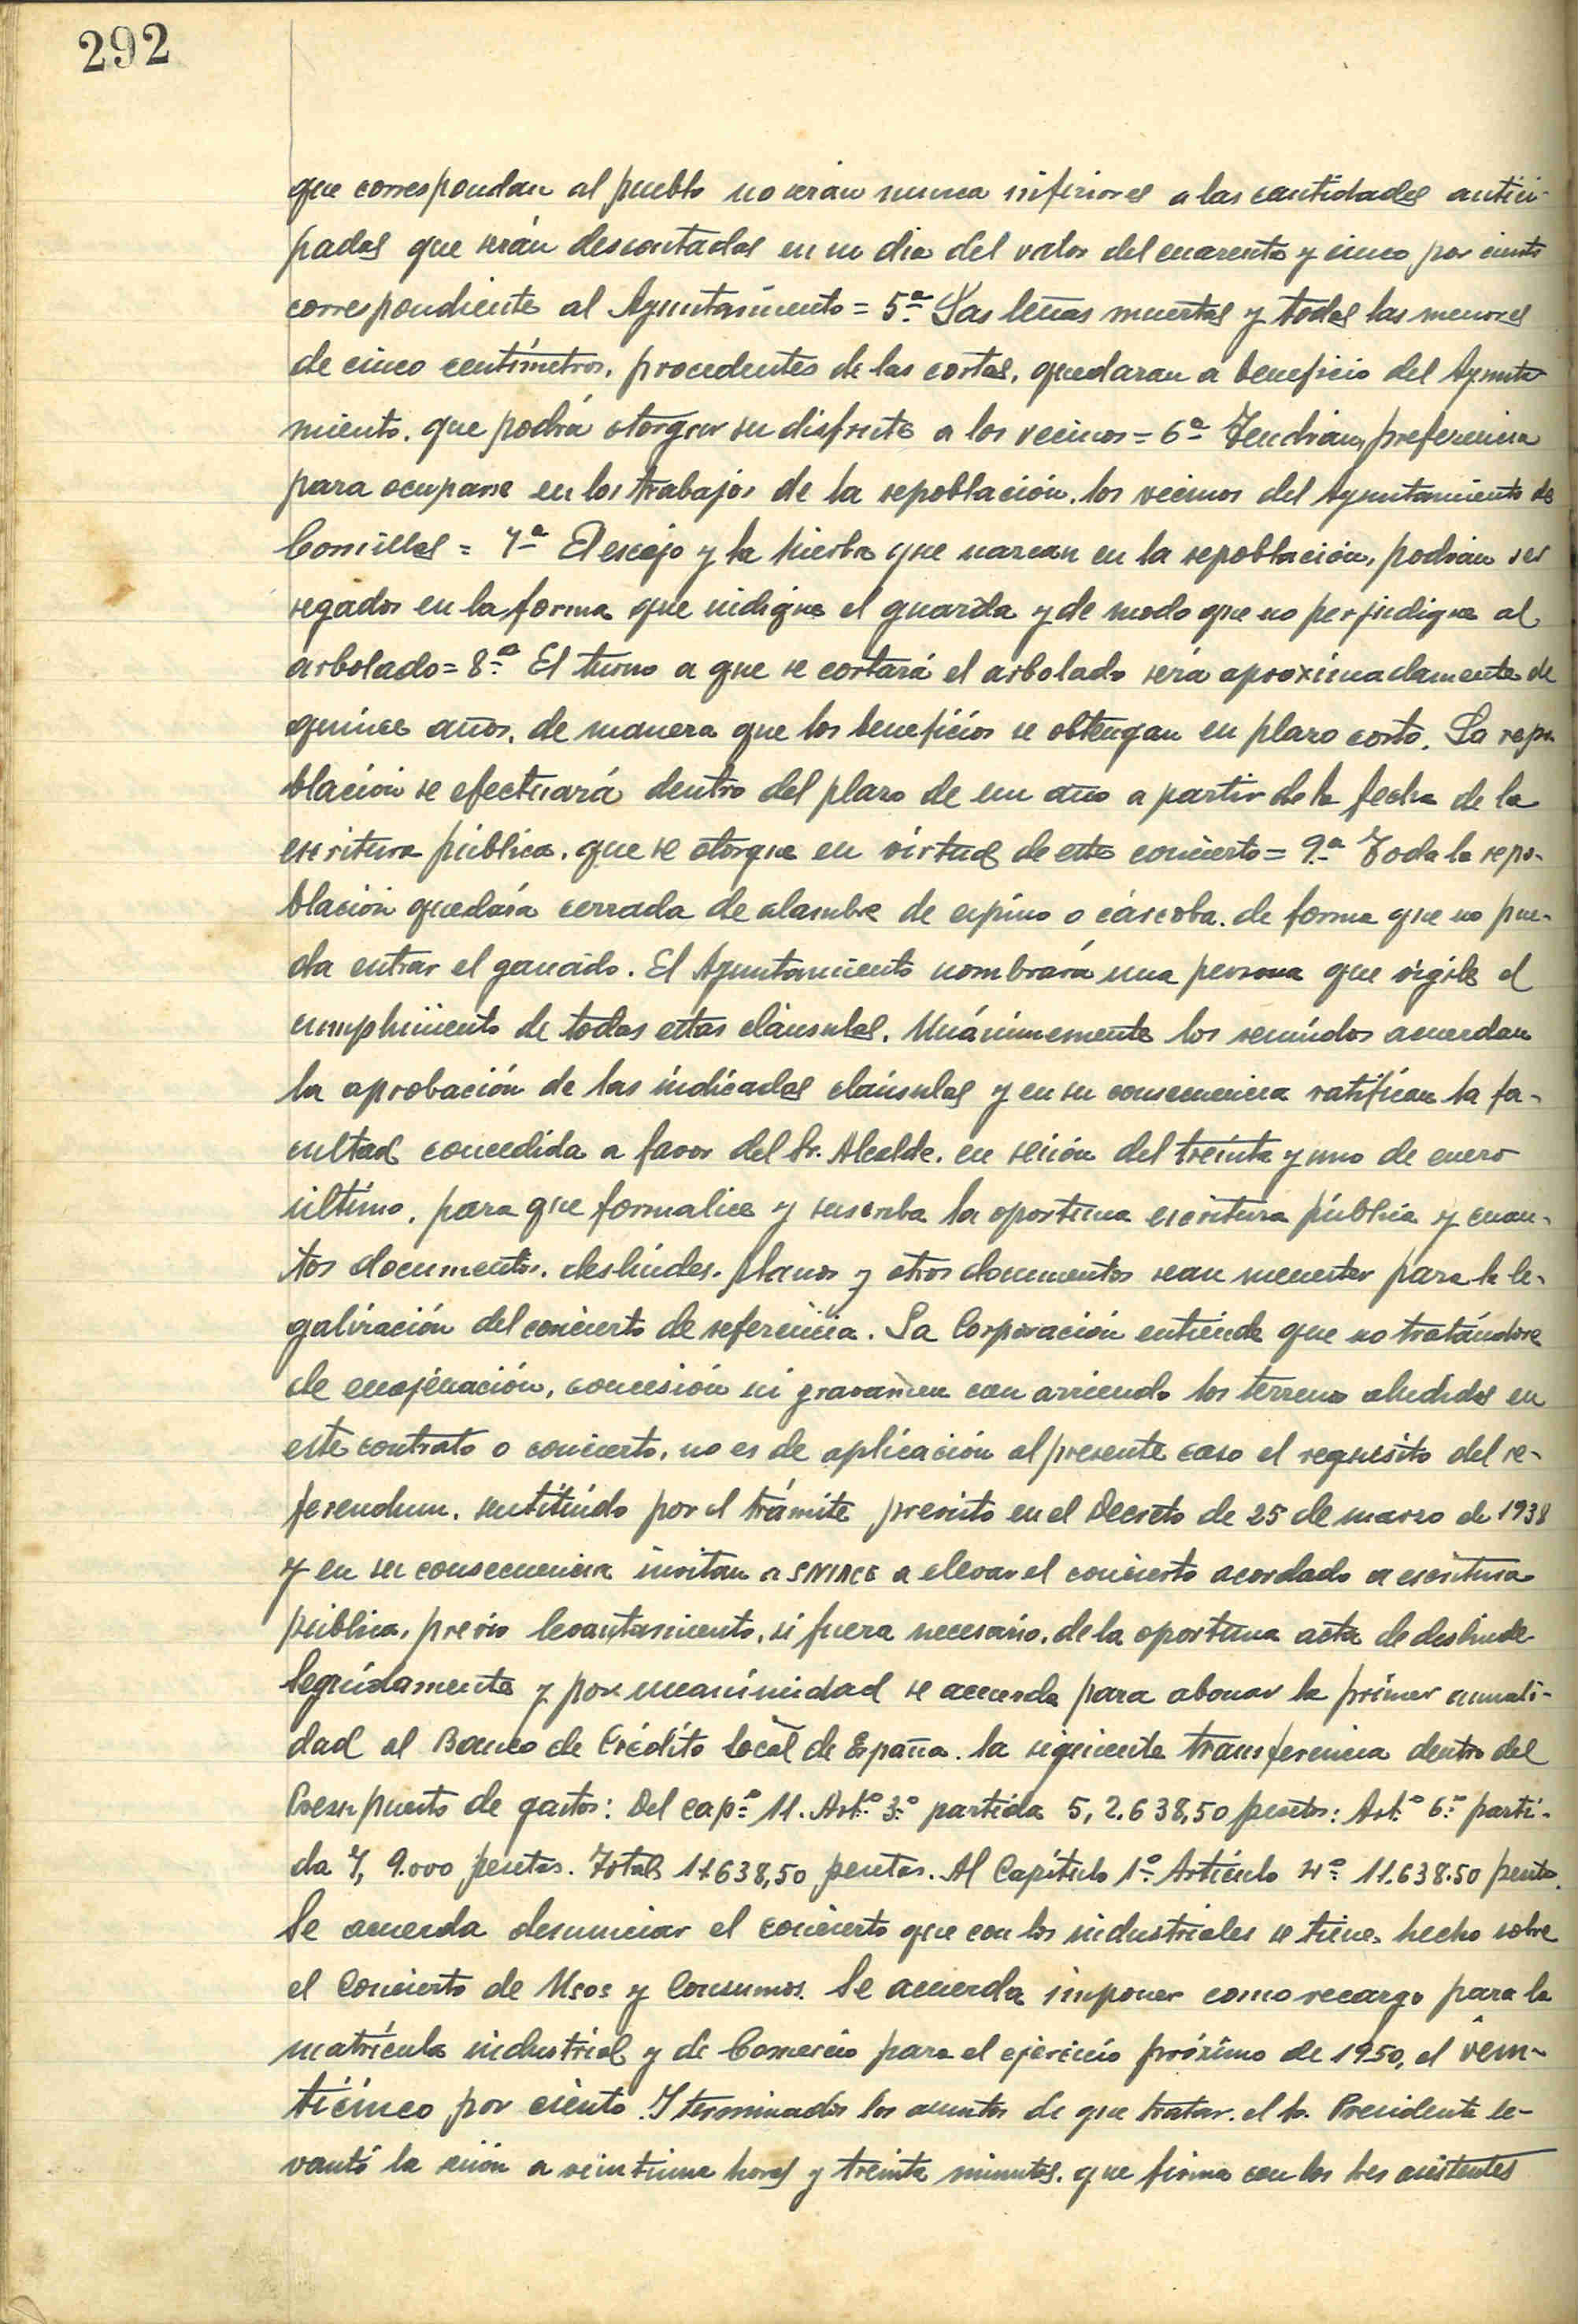 292
que correspondan al pueblo no serán nunca inferiores a las cantidades antici-
padas que serán descontadas en su dia del valor del cuarenta y cinco por ciento
correspondiente al Ayuntamiento = 5ª Las leñas muertas y todas las menores
de cinco centímetros, procedentes de las cortas, quedaran a beneficio del Ayunta
miento, que podrá otorgar su disfrute a los vecinos = 6ª Tendrian preferencia
para ocuparse en los trabajos de la repoblación, los vecinos del Ayuntamiento de
Comillas = 7ª El escajo y la hierba que nazcan en la repoblación, podrán ser
segados en la forma que indique el guarda y de modo que no perjudique al
arbolado = 8ª El turno a que se cortará el arbolado será aproximadamente de
quince años, de manera que los beneficios se obtengan en plazo corto. La repo
blación se efectuará dentro del plazo de un año a partir de la fecha de la
escritura pública, que se otorgue en virtud de este concierto = 9ª Toda la repo-
blación quedará cerrada de alambre de espino o cárcoba, de forma que no pue-
da entrar el ganado. El Ayuntamiento nombrará una persona que vigile el
cumplimiento de todas estas cláusulas. Unánimemente los reunidos acuerdan
la aprobación de las indicadas cláusulas y en su consecuencia ratifican la fa-
cultad concedida a favor del Sr. Alcalde, en sesión del treinta y uno de enero
último, para que formalice y suscriba la oportuna escritura pública y cuan-
tos documentos, deslindes, planos y otros documentos sean menester para la le-
galización del concierto de referencia. La Corporación entiende que no tratándose
de enajenación, concesión ni gravamen con arriendo los terreno aludidos en
este contrato o concierto, no es de aplicación al presente caso el requisito del re-
ferendum, sustituido por el trámite previsto en el Decreto de 25 de marzo de 1938
y en su consecuencia invitan a SNIACE a elevar el concierto acordado a escritura
pública, previo levantamiento, si fuera necesario, de la oportuna acta de deslinde
Seguidamente y por unanimidad se acuerda para abonar la primer anuali-
dad al Banco de Crédito Local de España, la siguiente transferencia dentro del
Presupuesto de gastos: Del capº 11. Artº 3º partida 5, 2.638,50 pesetas: Artº 6º parti-
da 7, 9.000 pesetas. Total 11.638,50 pesetas. Al Capítulo 1º Artículo 4º 11.638.50 pesetas.
Se acuerda denunciar el concierto que con los industriales se tiene hecho sobre
el Concierto de Usos y Consumos. Se acuerda imponer como recargo para la
matrícula industrial y de Comercio para el ejercicio próximo de 1950, el vein-
ticinco por ciento. Y terminados los asuntos de que tratar, el Sr. Presidente le-
vantó la sesión a veintiuna horas y treinta minutos, que firma con los tres asistentes